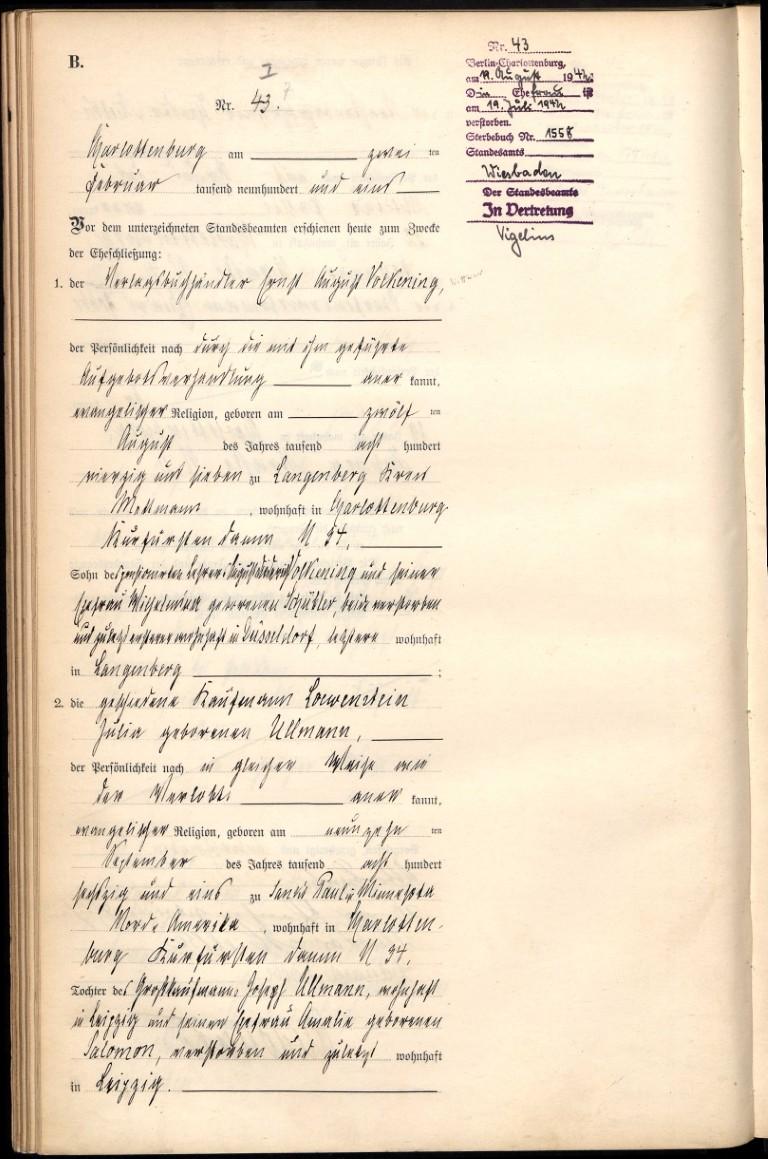 B.
Nr. 43.
Charlottenburg am zwei ten
Februar tausend neunhundert und eins
Vor dem unterzeichneten Standesbeamten erschienen heute zum Zwecke
der Eheschließung:
1. der Verlagsbuchhändler Ernst August Volkening,
der Persönlichkeit nach durch die mit ihm geführte
Aufgebotsverhandlung aner kannt,
evangelischer Religion, geboren am zwölf ten
August des Jahres tausend acht hundert
vierzig und sieben zu Langenberg Kreis
Mettmann, wohnhaft in Charlottenburg
Kurfürsten damm N 34,
Sohn des pensionirten Lehrers August Volkening und seiner
Ehefrau Wilhelmina geborenen Schüßler, beide verstorben
und zuletzt ersterer wohnhaft in Düsseldorf, letztere wohnhaft
in Langenberg ;
2. die geschiedene Kaufmann Loewenstein
Julia geborenen Ullmann,
der Persönlichkeit nach in gleicher Weise wie
der Verlobte aner kannt,
evangelischer Religion, geboren am neunzehn ten
September des Jahres tausend acht hundert
sechszig und eins zu Sanct Paul i. Minnesota
Nord-Amerika, wohnhaft in Charlotten-
burg Kurfürsten damm N 34,
Tochter des Großkaufmanns Joseph Ullmann, wohnhaft
in Leipzig und seiner Ehefrau Amalie geborenen
Salomon, verstorben und zuletzt wohnhaft
in Leipzig.
Nr. 43
Berlin-Charlottenburg,
am 19. August 1942.
Die Ehefrau ist
am 19. Juli 1942
verstorben.
Sterbebuch Nr. 1558
Standesamts
Wiesbaden
Der Standesbeamte
In Vertretung
Vigelius